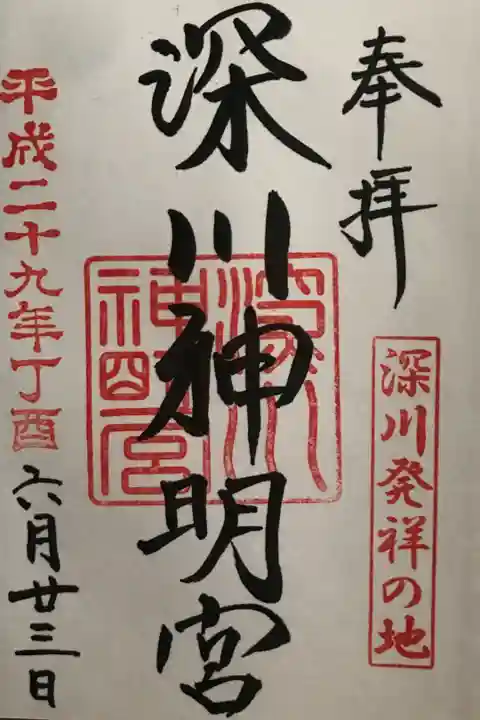 奉拝
深川発祥の地
深川神明宮
深川神明宮
平成二十九年丁酉六月廿三日